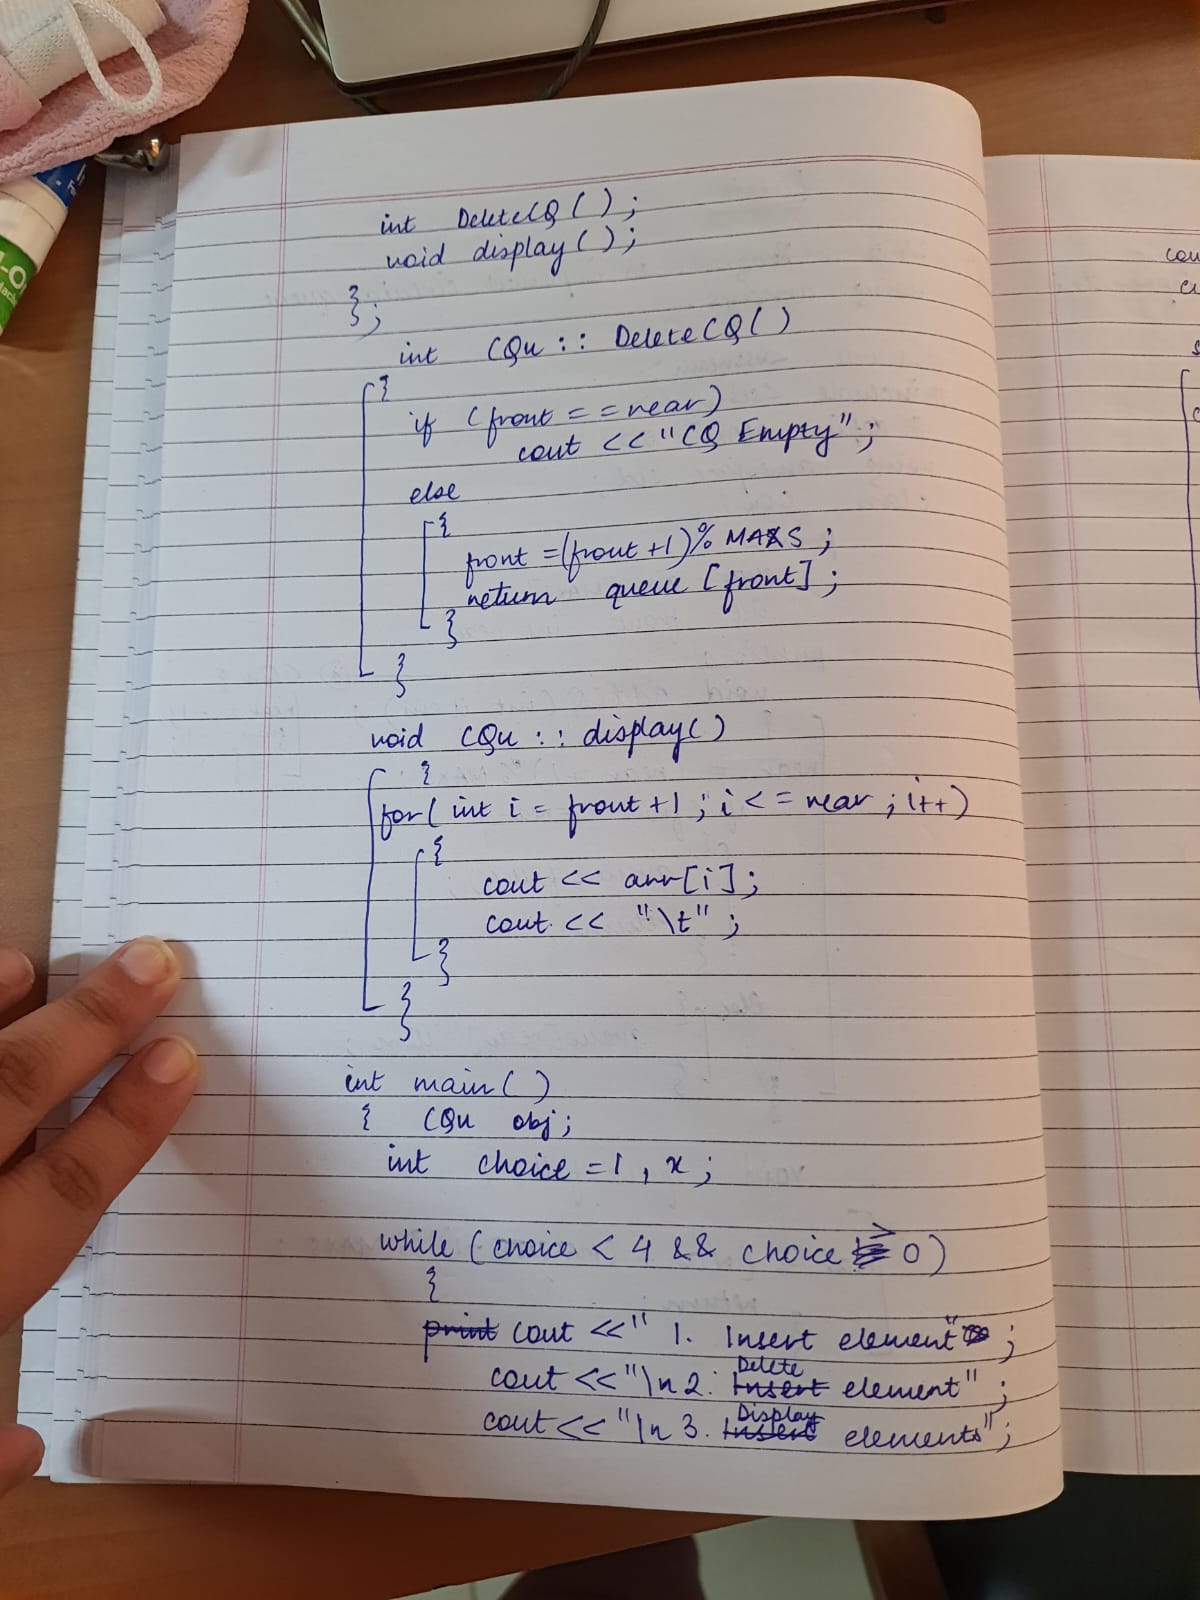 int DeleteCQ();
void display();
};
int CQu :: DeleteCQ()
{
if (front == rear)
cout << "CQ Empty";
else
{
front = (front +1)% MAXS;
return queue [front];
}
}
void CQu :: display()
{
for( int i = front +1 ; i <= rear ; i++)
{
cout << arr[i];
cout << "\t" ;
}
}
int main()
{ CQu obj;
int choice = 1, x;
while (choice < 4 && choice > 0)
{
print cout <<" 1. Insert element" ;
cout <<"\n 2. Insert Delete element" ;
cout <<"\n 3. Insert Display elements";